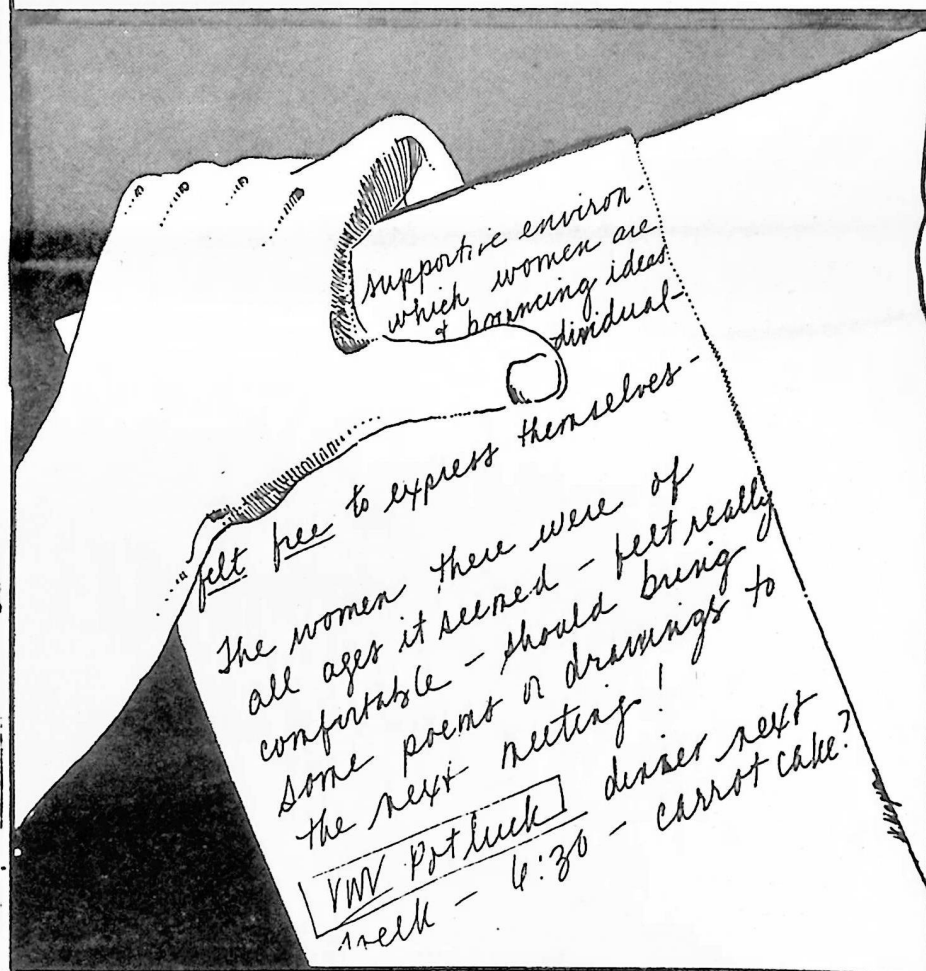 supportive environ-
which women are
& bouncing ideas
dividual-
felt free to express themselves -
The women there were of
all ages it seemed - felt really
comfortable - should bring
some poems or drawings to
the next meeting!
VWV Potluck dinner next
week - 6:30 - carrot cake?